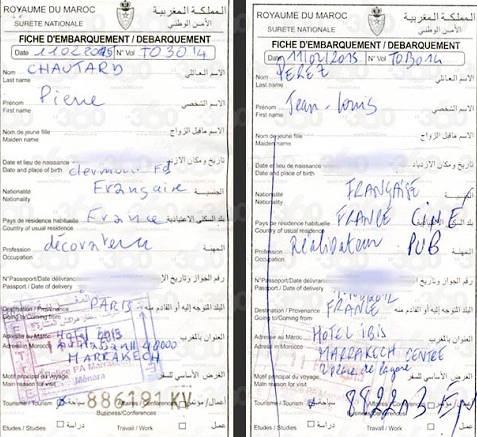 ROYAUME DU MAROC
المملكة المغربية
SURETE NATIONALE
الأمن الوطني
FICHE D'EMBARQUEMENT / DEBARQUEMENT
Date 11.02.2015 N° Vol TO3014
Nom
Last name
CHAUTARD
الاسم العائلي
Prénom
First name
Pierre
الاسم الشخصي
Nom de jeune fille
Maiden name
الاسم ماقبل الزواج
Date et lieu de naissance
Date and place of birth
تاريخ ومكان الازدياد
clermont Fd
Nationalité
Nationality
Française
الجنسية
Pays de résidence habituelle
Country of usual residence
France
بلد السكنى الاعتيادية
Profession
Occupation
décorateur
المهنة
N°Passeport/Date délivrance
Passport / Date of delivery
رقم الجواز وتاريخ
Destination / Provenance
Going to/Coming from
PARIS
البلد المتوجه إليه أو القادم منه
Adresse au Maroc
Adress in Morocco
Hotel
40000
MARRAKECH
العنوان بالمغرب
Motif principal du voyage
Main reason for visit
الغرض الأساسي للسفر
Ménara
Tourisme / Tourism
سياحة
886191 KV
Business/Conferences
Etudes
دراسة
Travail / Work
عمل
ROYAUME DU MAROC
المملكة المغربية
SURETE NATIONALE
الأمن الوطني
FICHE D'EMBARQUEMENT / DEBARQUEMENT
Date 11/02/2015 N° Vol TO3014
Nom
Last name
PEREZ
الاسم العائلي
Prénom
First name
Jean-Louis
الاسم الشخصي
Nom de jeune fille
Maiden name
الاسم ماقبل الزواج
Date et lieu de naissance
Date and place of birth
تاريخ ومكان الازدياد
Nationalité
Nationality
FRANÇAISE
الجنسية
Pays de résidence habituelle
Country of usual residence
FRANCE CINE
Profession
Occupation
Réalisateur PUB
المهنة
N°Passeport/Date délivrance
Passport / Date of delivery
رقم الجواز وتاريخ
Destination / Provenance
Going to/Coming from
FRANCE
البلد المتوجه إليه أو القادم منه
Adresse au Maroc
Adress in Morocco
HOTEL IBIS
MARRAKECH CENTRE
Place de la gare
العنوان بالمغرب
Motif principal du voyage
Main reason for visit
الغرض الأساسي للسفر
Tourisme / Tourism
سياحة
Business/Conferences
Etudes
دراسة
Travail / Work
عمل